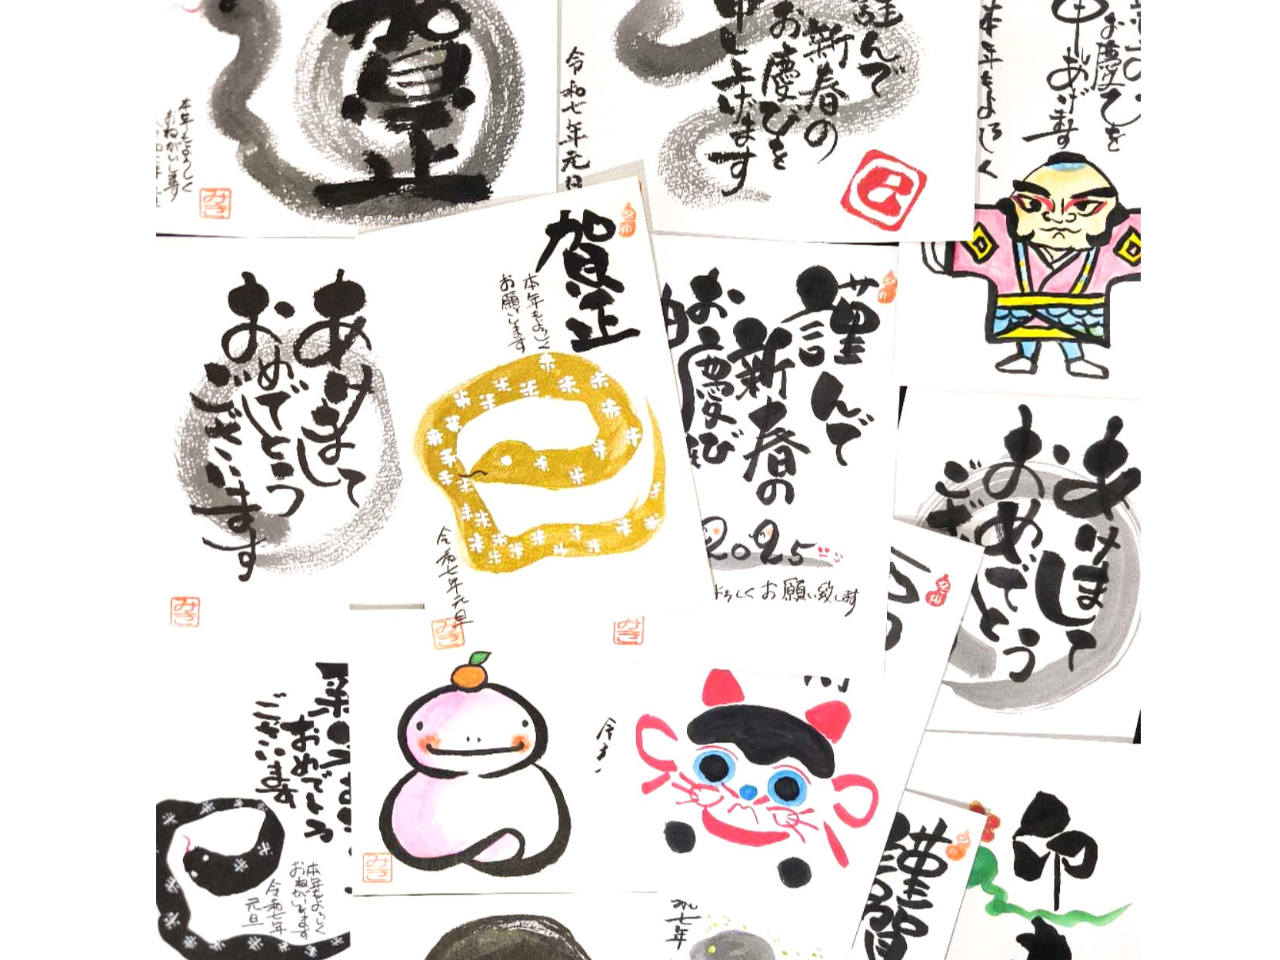 賀正
本年もよろしく
おねがいします
みき
令和七年元旦
謹んで
新春の
お慶びを
申し上げます
巳
お慶びを
申しあげます
本年もよろしく
あけまして
おめでとう
ございます
みき
賀正
本年もよろしく
お願いします
令和七年元旦
みき
謹んで
新春の
お慶び
2025
よろしくお願い致します
みき
あけまして
おめでとう
おめでとう
ございます
本年もよろしく
おねがいします
令和七年
元旦
みき
七年
謹賀